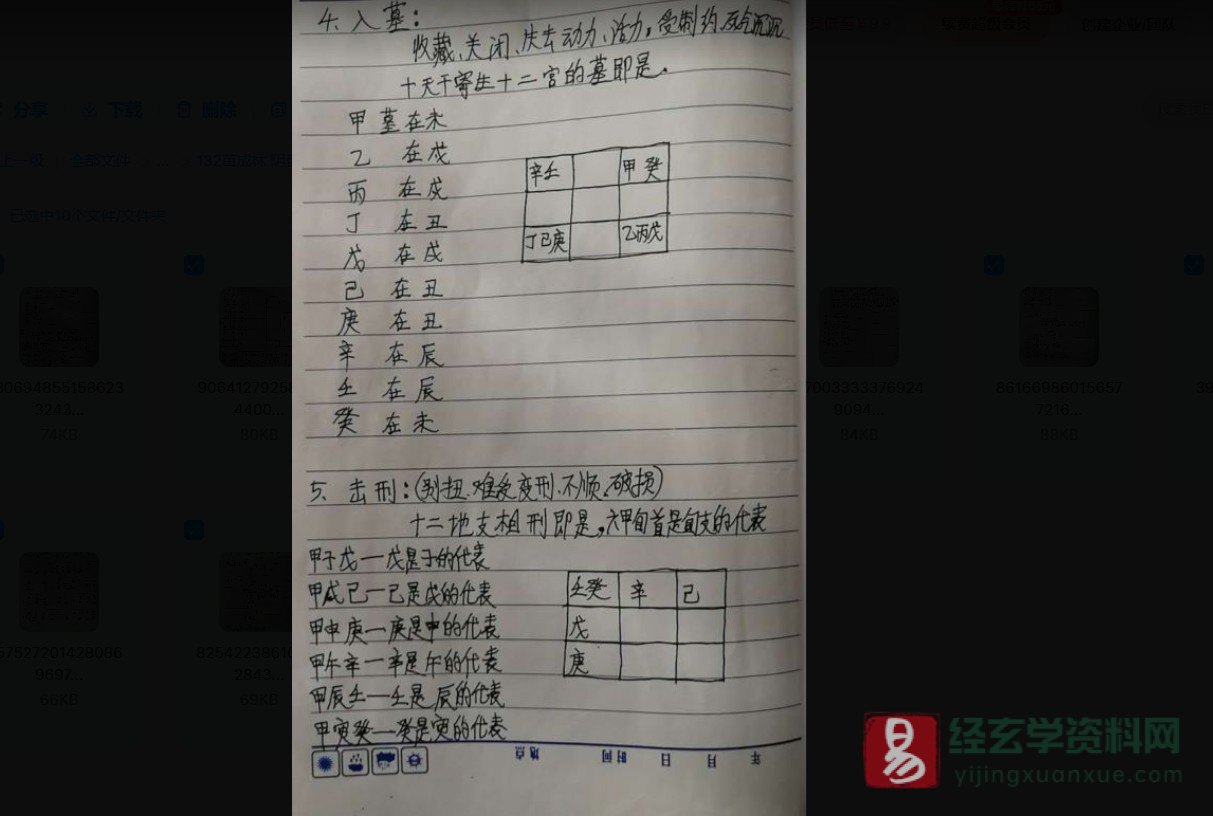 4. 入墓：
收藏、关闭、失去动力、活力，受制约，死气沉沉
十天干寄生十二宫的墓即是.
甲 墓在未
乙 在戌
丙 在戌
丁 在丑
戊 在戌
己 在丑
庚 在丑
辛 在辰
壬 在辰
癸 在未
辛壬 甲癸
丁己庚 乙丙戊
5、击刑：(别扭、难受、变形、不顺、破损)
十二地支相刑即是，六甲旬首是旬支的代表
甲子戊一戊是子的代表
甲戌己一己是戌的代表
甲申庚一庚是申的代表
甲午辛一辛是午的代表
甲辰壬一壬是辰的代表
甲寅癸一癸是寅的代表
壬癸 辛 己
戊
庚
年 月 日 时间 地点
分享 下载 删除
上一级 全部文件
已选中10个文件/文件夹
续费超级会员 创建企业/团队
80694855158623
3243...
74KB
9064127925
4400...
80KB
7003333376924
9094...
84KB
86166986015657
7216...
88KB
57527201428086
9697...
66KB
825422386
2843...
69KB
易
经玄学资料网
yijingxuanxue.com